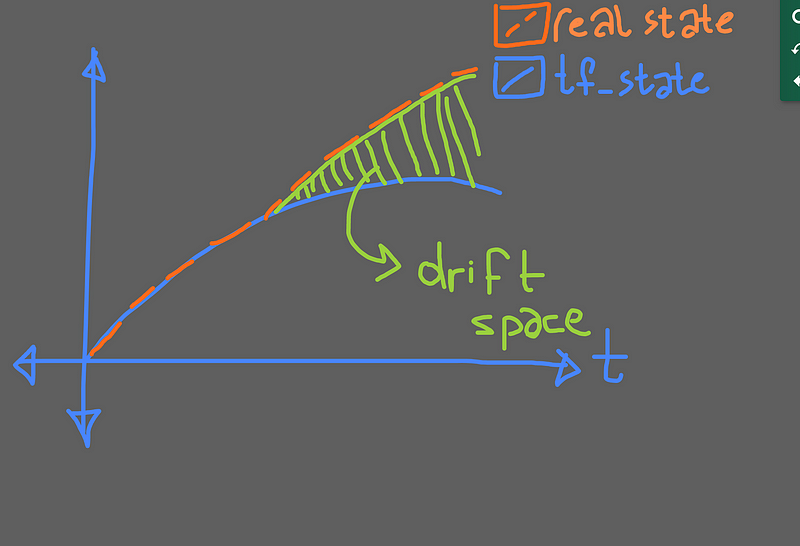 real state
tf_state
drift
space
t